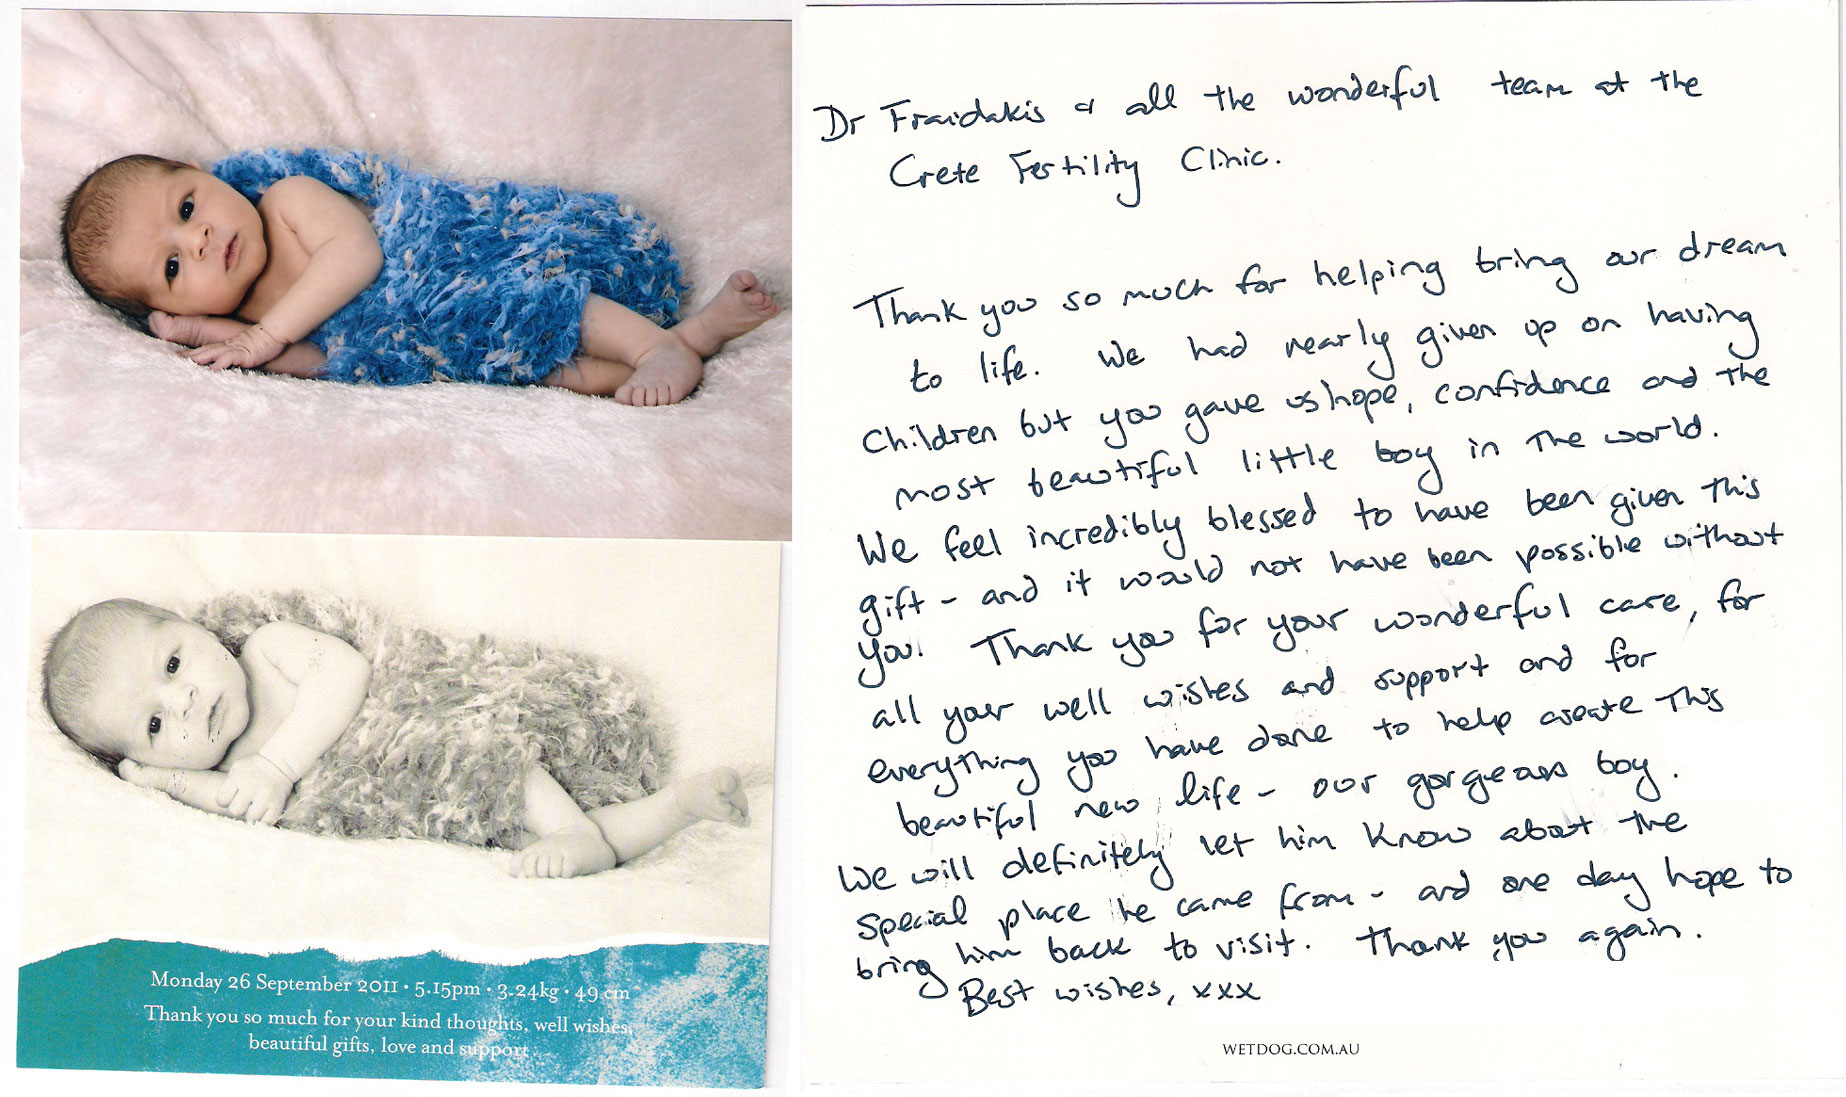 Monday 26 September 2011 • 5.15pm • 3.24kg • 49 cm
Thank you so much for your kind thoughts, well wishes,
beautiful gifts, love and support
Dr Fraidakis & all the wonderful team at the
Crete Fertility Clinic.
Thank you so much for helping bring our dream
to life. We had nearly given up on having
children but you gave us hope, confidence and the
most beautiful little boy in the world.
We feel incredibly blessed to have been given this
gift - and it would not have been possible without
you! Thank you for your wonderful care, for
all your well wishes and support and for
everything you have done to help create this
beautiful new life - our gorgeous boy.
We will definitely let him know about the
special place he came from - and one day hope to
bring him back to visit. Thank you again.
Best wishes, xxx
WETDOG.COM.AU